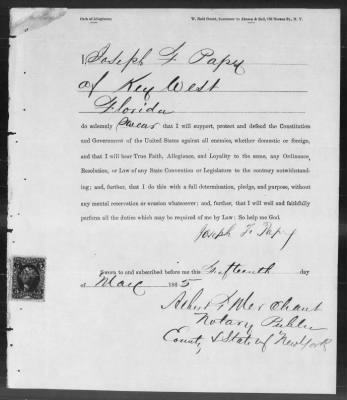 Oath of Allegiance.
W. Reid Gould, Successor to
I, Joseph F Papy
of Key West
Florida
do solemnly swear that I will support, protect and defend the Constitution
and Government of the United States against all enemies, whether domestic or foreign,
and that I will bear True Faith, Allegiance, and Loyality to the same, any Ordinance,
Resolution, or Law of any State Convention or Legislature to the contrary notwithstand-
ing; and, further, that I do this with a full determination, pledge, and purpose, without
any mental reservation or evasion whatsoever; and, further, that I will well and faithfully
perform all the duties which may be required of me by Law: So help me God.
Joseph F. Papy
Sworn to and subscribed before me this fifteenth day
of 1865
Merchant
Notary Public
County & State of New York